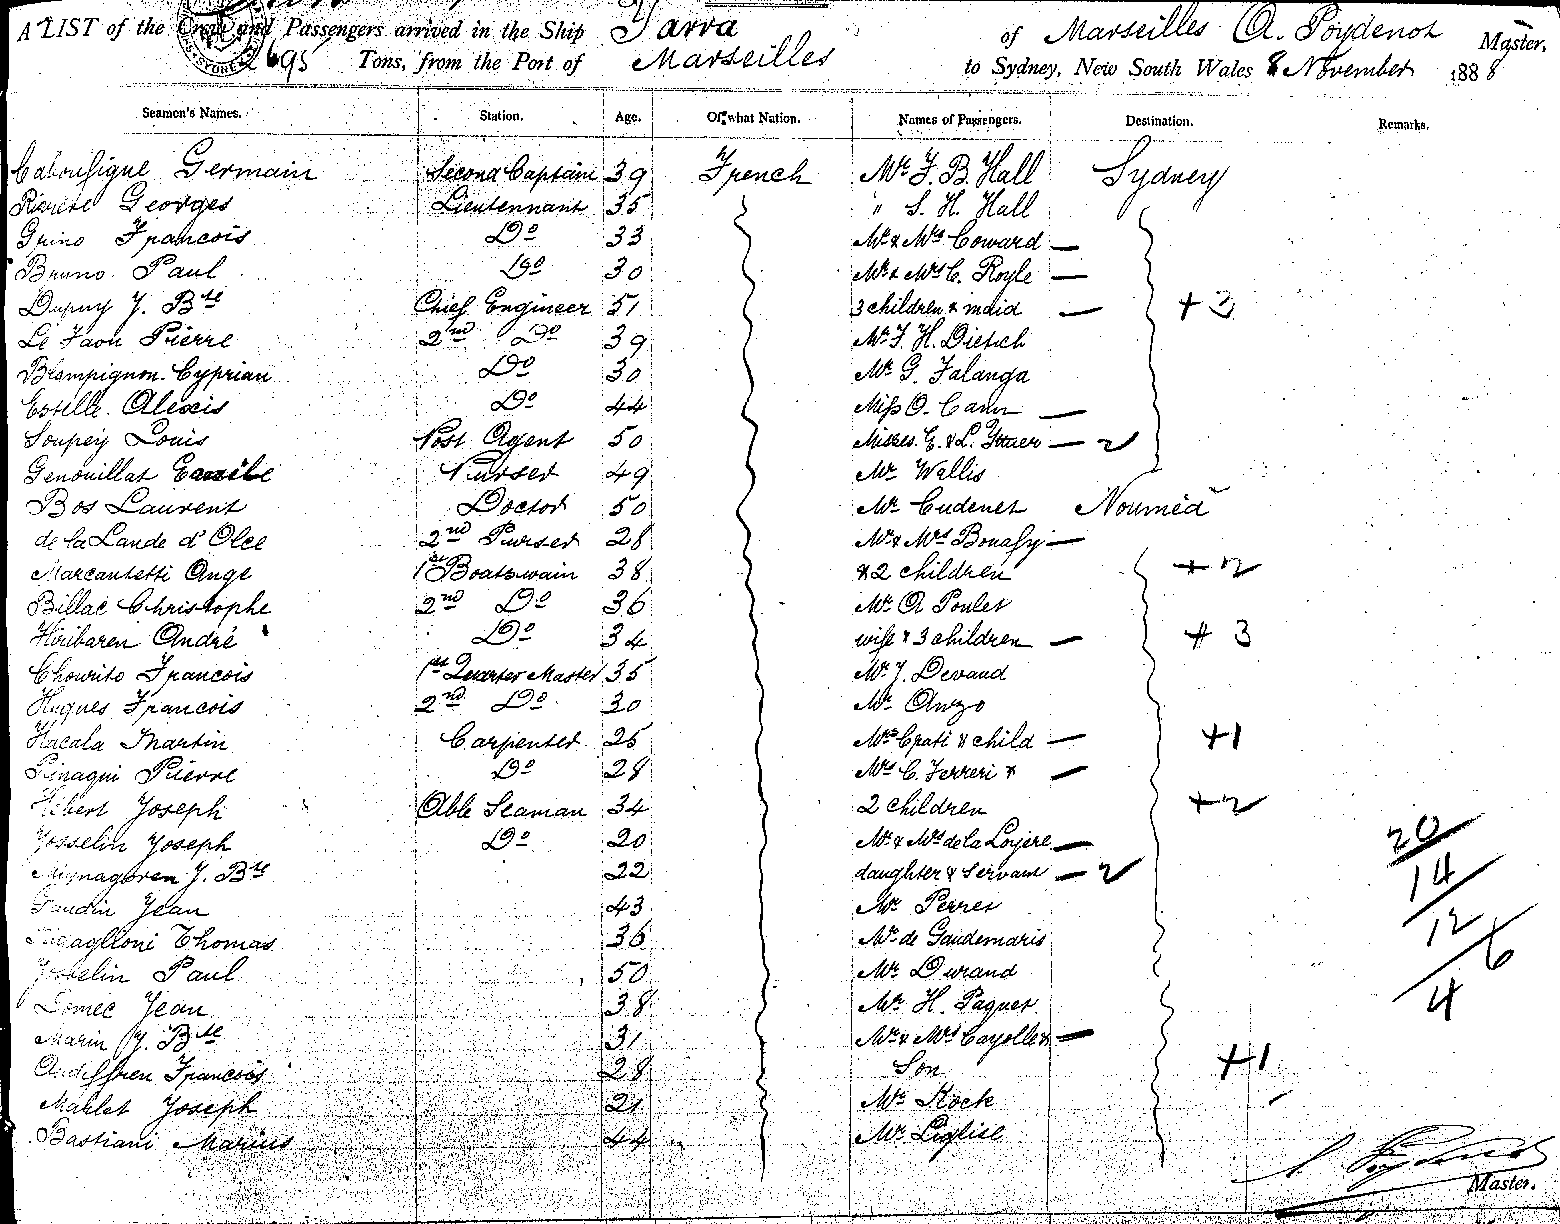 A LIST of the Crew and Passengers arrived in the Ship Yarra of Marseilles A. Poydenot Master,
2695 Tons, from the Port of Marseilles to Sydney, New South Wales 8 November 1888
Seamen's Names. Station. Age. Of what Nation. Names of Passengers. Destination. Remarks.
Germain Second Captain 39 French Mr F. B. Hall Sydney
Riviere Georges Lieutennant 35 " S. H. Hall
Grino Francois Do 33 Mr & Mrs Coward —
Bruno Paul Do 30 Mr & Mrs C. Royle —
Dupuy J. Bte Chief Engineer 51 3 children & maid — +3
Le Faon Pierre 2nd Do 39 Mr F. H. Dietich
Blampignon Cyprian Do 30 Mr G. Falanga
Estelle Alexis Do 44 Miss O. Cann —
Soupey Louis Post Agent 50 Misses E. & L. — 2
Genouillat Emile Purser 49 Mr Wallis
Bos Laurent Doctor 50 Mr Cudenet Noumea
de la Lande d'Olce 2nd Purser 28 Mr & Mrs Bonafy —
Marcantetti Ange 1st Boatswain 38 & 2 children +2
Billac Christophe 2nd Do 36 Mr A Poulet
Hiribaren André Do 34 wife & 3 children — + 3
Chourito Francois 1st Quarter Master 35 Mr J. Devaud
Hugues Francois 2nd Do 30 Mr Anzo
Hacala Martin Carpenter 25 Mrs Crati & child — +1
Pinaqui Pierre Do 28 Mrs C. Ferreri & —
Hebert Joseph Able Seaman 34 2 children +2
Josselin Joseph Do 20 Mr & Mrs de la Loyere — 20
J. Bte 22 daughter & Servant — 2 14
Gaudin Jean 43 Mr Perret
Thomas 36 Mr de Gaudemaris 12
Josselin Paul 50 Mr Durand 6
Lomec Jean 38 Mr H. Paquet 4
Marin J. Bte 31 Mr & Mrs Cayolle & —
Audiffren Francois 28 Son +1
Marlet Joseph 21 Mr Kock
Bastiani Marius 44 Mr Liglise
Master.